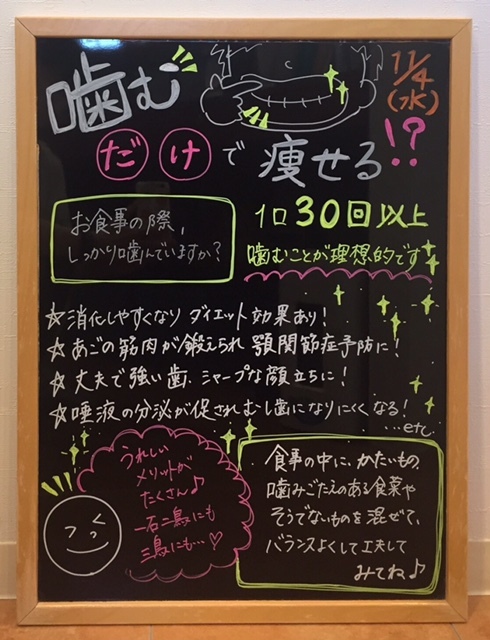 噛む
11/4
(水)
だけで痩せる!?
お食事の際、
しっかり噛んでいますか?
1口30回以上
噛むことが理想的です
☆消化しやすくなりダイエット効果あり!
☆あごの筋肉が鍛えられ顎関節症予防に!
☆丈夫で強い歯、シャープな顔立ちに!
☆唾液の分泌が促されむし歯になりにくくなる!
…etc.
うれしい
メリットが
たくさん♪
一石二鳥にも
三鳥にも…♡
食事の中に、かたいもの、
噛みごたえのある食菜や
そうでないものを混ぜて、
バランスよくして工夫して
みてね♪